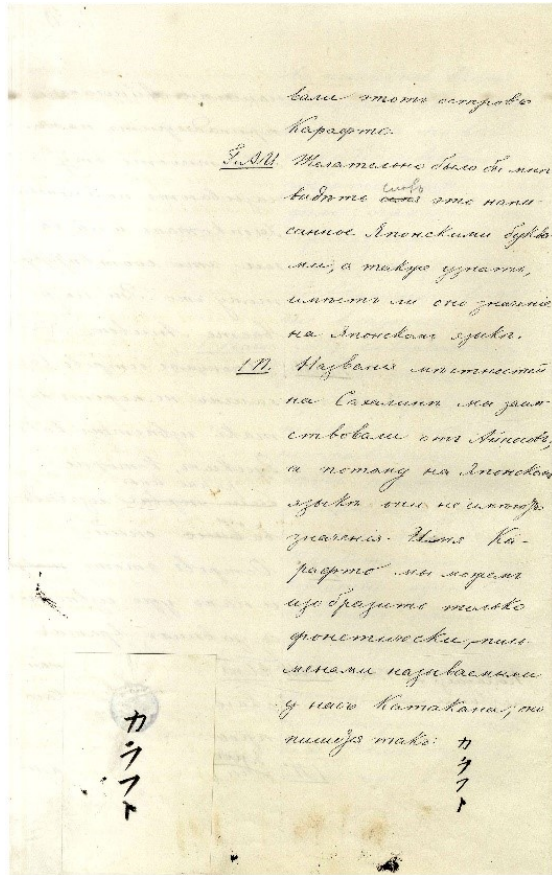 вали этотъ островъ
Карафто.
Г.А.И. Желательно было бы мнѣ
видѣть слово это напи-
санное Японскими буква-
ми, а также узнать,
имѣетъ ли оно значеніе
на Японскомъ языкѣ.
1 П. Названія мѣстностей
на Сахалинѣ мы заим-
ствовали отъ Айносовъ,
а потому на Японскомъ
языкѣ они не имѣютъ
значенія. Имя Ка-
рафто мы можемъ
изобразить только
фонетически, пись-
менами называемыми
у насъ Катакана; оно
пишется такъ:
カラフト
カラフト